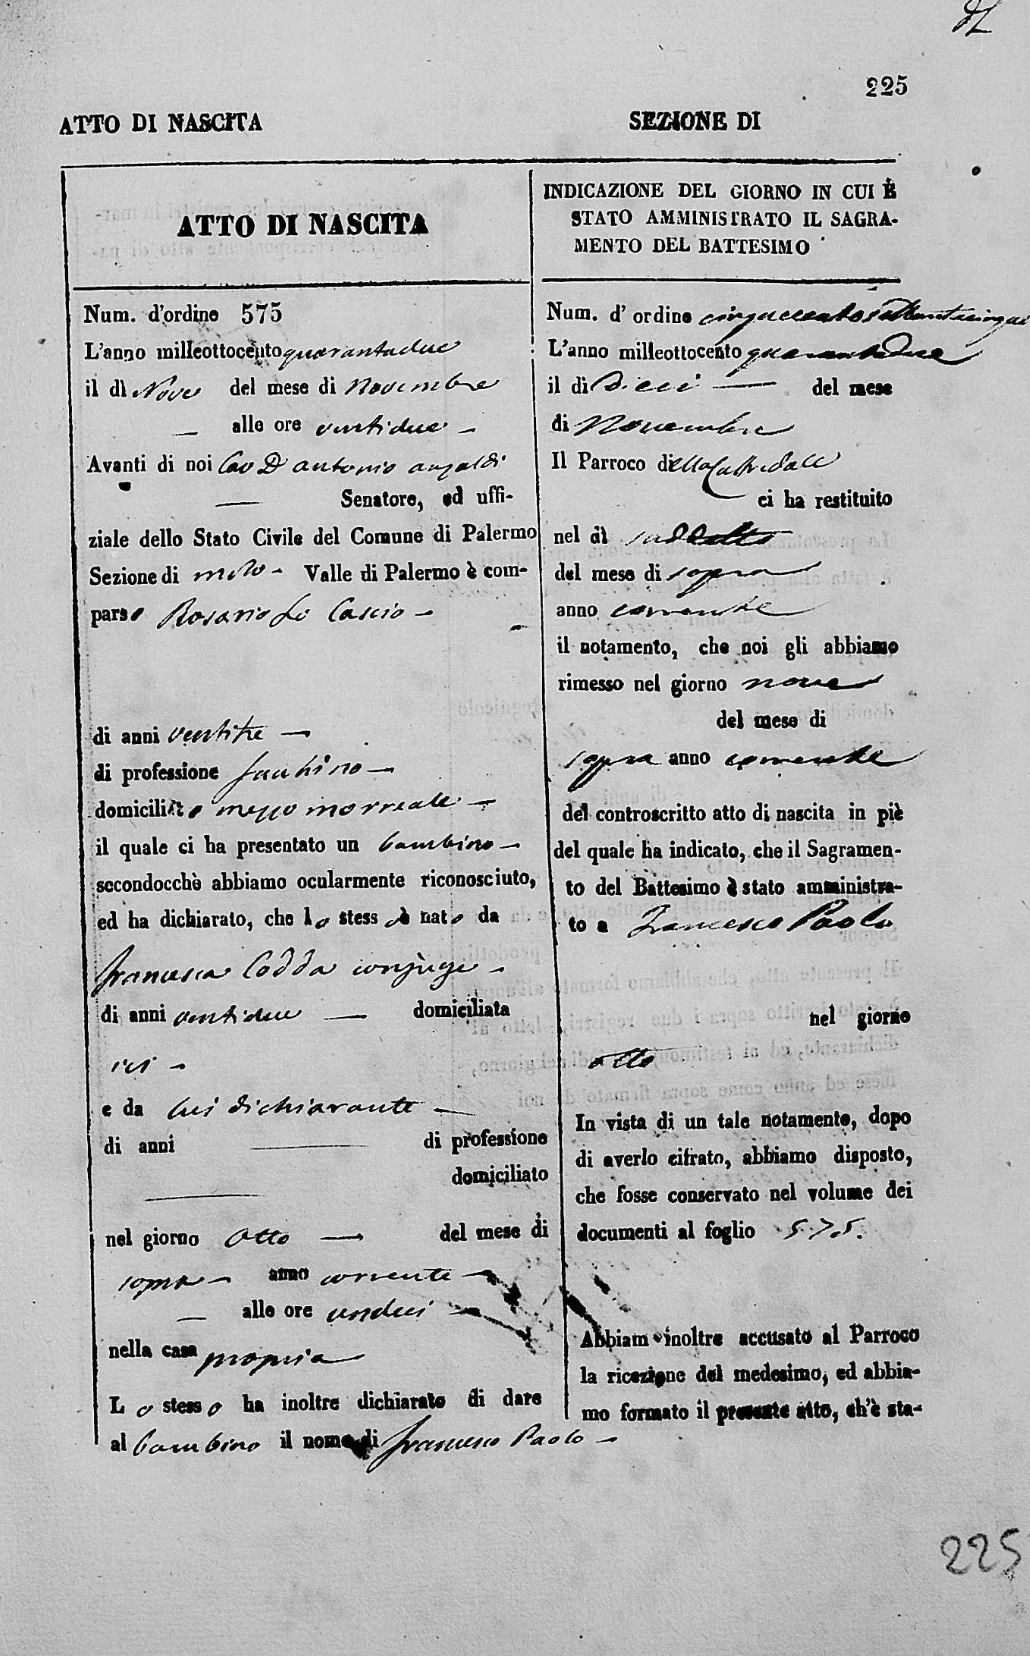 225
ATTO DI NASCITA
SEZIONE DI
ATTO DI NASCITA
Num. d'ordine 575
L'anno milleottocento quarantadue
il dì Nove del mese di Novembre
alle ore ventidue
Avanti di noi Cav D Antonio
Senatore, ed uffi-
ziale dello Stato Civile del Comune di Palermo
Sezione di Molo Valle di Palermo è com-
parso Rosario Lo Cascio
di anni ventitre
di professione facchino
domiciliato mezzo morreale
il quale ci ha presentato un bambino
secondocchè abbiamo ocularmente riconosciuto,
ed ha dichiarato, che lo stesso è nato da
Francesca Codda conjuge
di anni ventidue domiciliata
ivi
e da lui dichiarante
di anni di professione
domiciliato
nel giorno Otto del mese di
sopra anno corrente
alle ore undeci
nella casa propria
Lo stesso ha inoltre dichiarato di dare
al bambino il nome di Francesco Paolo
INDICAZIONE DEL GIORNO IN CUI È
STATO AMMINISTRATO IL SAGRA-
MENTO DEL BATTESIMO
Num. d' ordine cinquecentosettantacinque
L'anno milleottocento quarantadue
il dì Dieci del mese
di Novembre
Il Parroco della Cattedrale
ci ha restituito
nel dì suddetto
del mese di sopra
anno corrente
il notamento, che noi gli abbiamo
rimesso nel giorno nove
del mese di
sopra anno corrente
del controscritto atto di nascita in piè
del quale ha indicato, che il Sagramen-
to del Battesimo è stato amministra-
to a Francesco Paolo
nel giorno
otto
In vista di un tale notamento, dopo
di averlo cifrato, abbiamo disposto,
che fosse conservato nel volume dei
documenti al foglio 575.
Abbiam inoltre accusato al Parroco
la ricezione del medesimo, ed abbia-
mo formato il presente atto, ch'è sta-
225